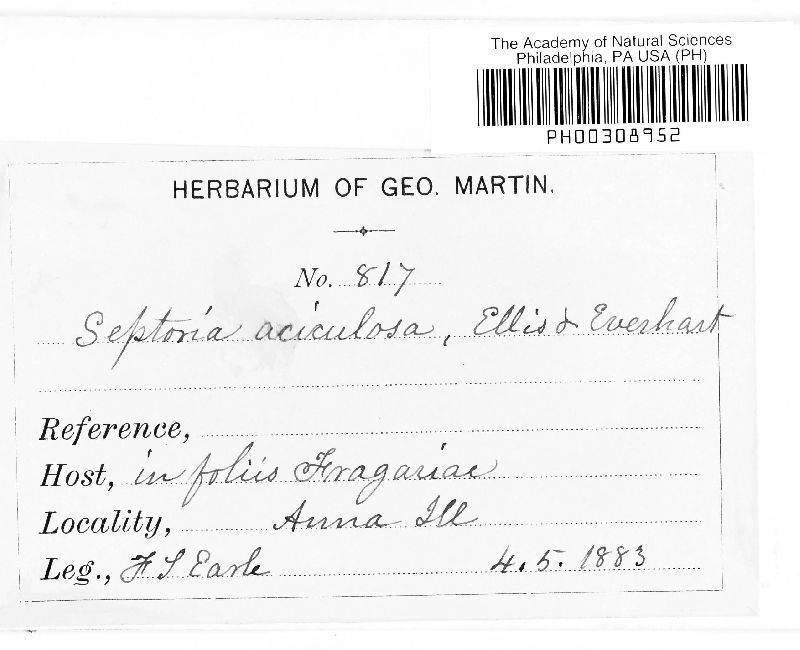 The Academy of Natural Sciences
Philadelphia, PA USA (PH)
PH00308952
HERBARIUM OF GEO. MARTIN.
No. 817
Septoria aciculosa, Ellis & Everhart
Reference,
Host, in foliis Fragariae
Locality, Anna Ill
Leg., F S Earle 4.5.1883